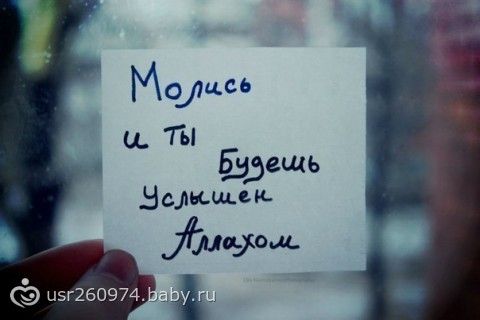 Молись
и ты
Будешь
Услышен
Аллахом
usr260974.baby.ru